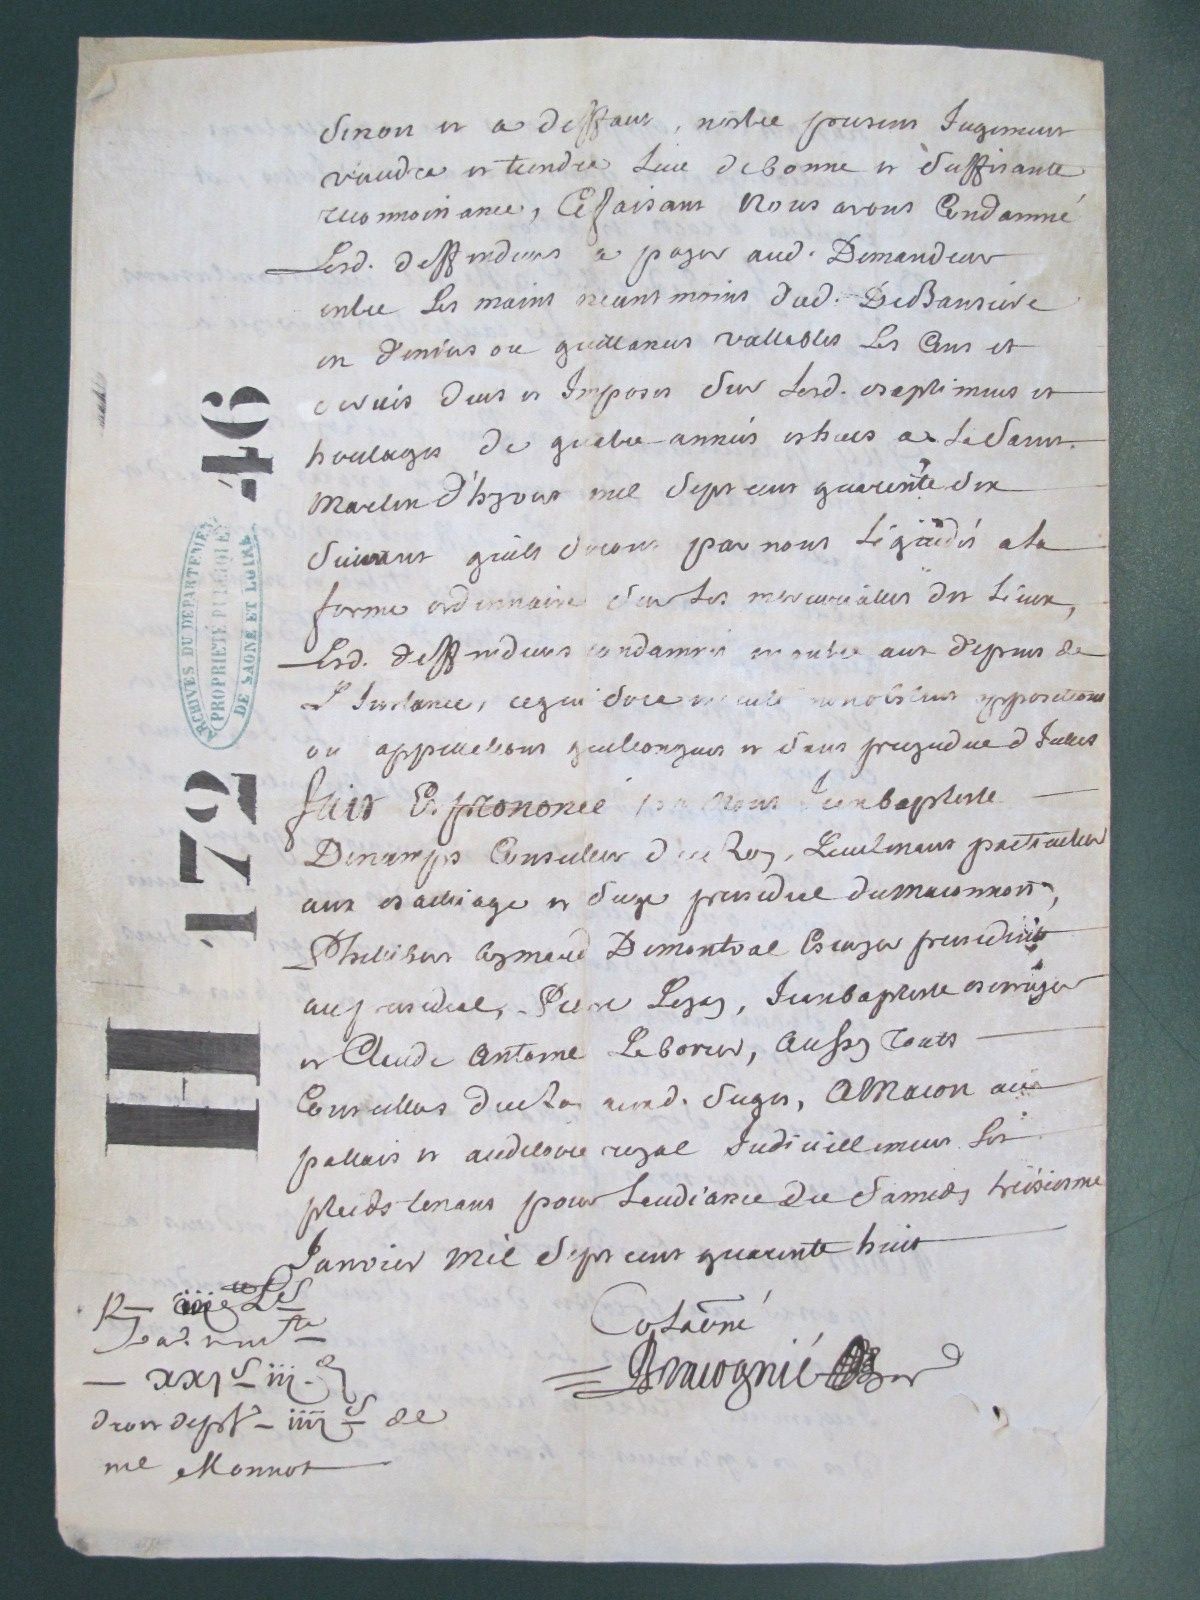 Sinon et a deffaut, nostre present Jugement
vaudra et tiendra Lieu de bonne et Suffisante
reconnoissance, Ce faisant Nous avons Condamné
Lesd. deffendeurs a payer aud. Demandeur
entre Les mains neantmoins dud. DeBaussiere
en deniers ou quittances vallables Les Cens et
servis deus et Imposes Sur Lesd. et
de quatre années eschues a La Saint
Martin d'hyver mil Sept cent quarente Six
Suivant quils Seront par nous Liquidés a la
forme ordinnaire Sur Les mercurialles des Lieux,
Lesd. deffendeurs condamnés en outre aux depens de
L'Instance, ce qui Sera executé nonobstant oppositions
ou appellations quelconques et Sans prejudice d'Icelles
fait Et prononcé par Nous Jean baptiste
Desmamps Conseiller du Roy, Lieutenant particulier
aux et Siege presidial du maconnois,
Philibert Demontval Escuyer president
au presidial, Pierre Jean baptiste
et Claude Antoine Leborier, aussy touts
Conseillers du Roy aud. Siege, A Macon au
pallais et auditoire royal Judiciellement Les
pleids tenans pour Laudiance du Samedy treisiesme
Janvier mil Sept cent quarente huit
Collationné
droit de de
me Monnot
H 172 46
ARCHIVES DU DEPARTEMENT
PROPRIÉTÉ PUBLIQUE
DE SAONE ET LOIRE